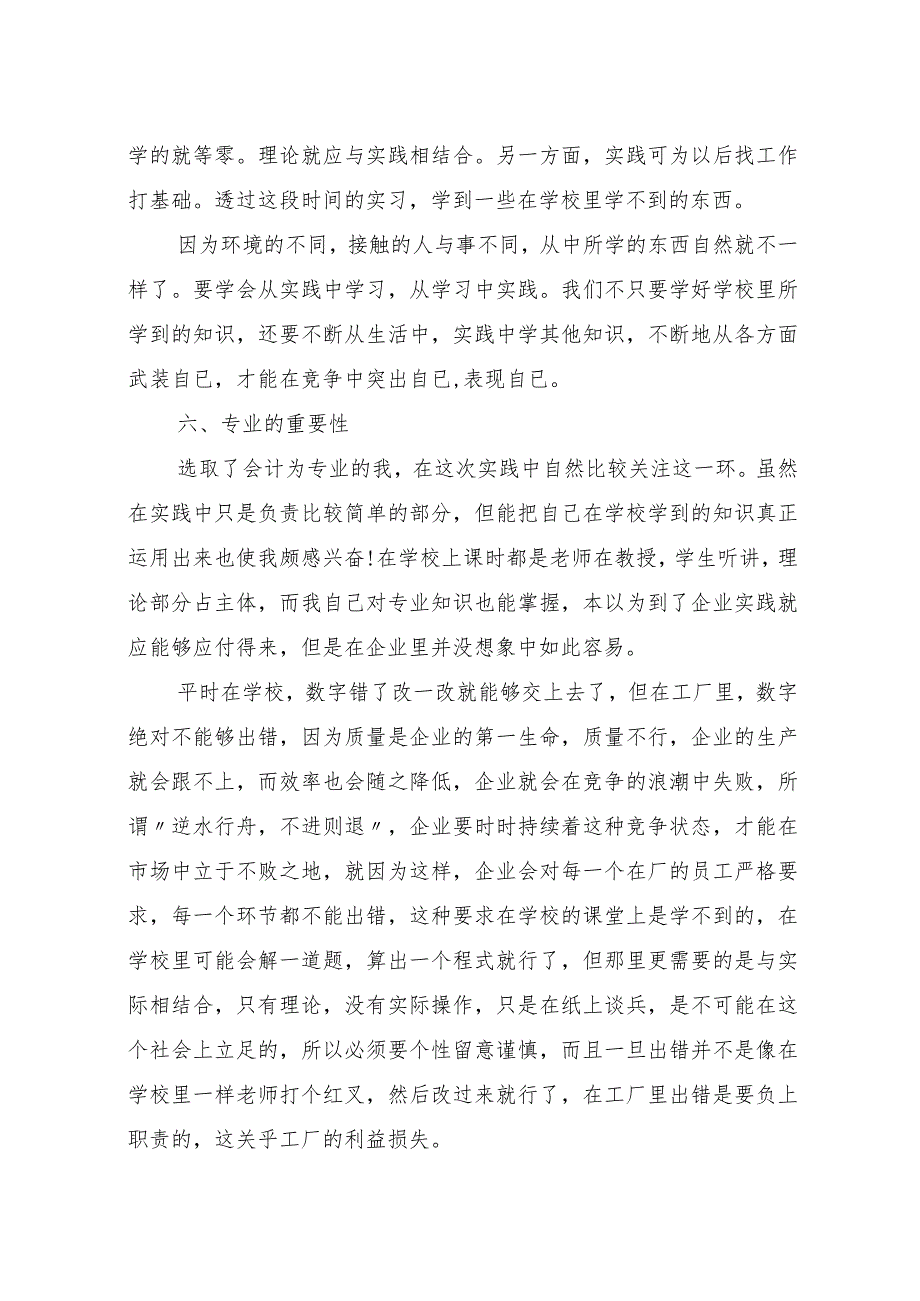 学的就等零。理论就应与实践相结合。另一方面，实践可为以后找工作
打基础。透过这段时间的实习，学到一些在学校里学不到的东西。
因为环境的不同，接触的人与事不同，从中所学的东西自然就不一
样了。要学会从实践中学习，从学习中实践。我们不只要学好学校里所
学到的知识，还要不断从生活中，实践中学其他知识，不断地从各方面
武装自已，才能在竞争中突出自已,表现自已。
六、专业的重要性
选取了会计为专业的我，在这次实践中自然比较关注这一环。虽然
在实践中只是负责比较简单的部分，但能把自己在学校学到的知识真正
运用出来也使我颇感兴奋!在学校上课时都是老师在教授，学生听讲，理
论部分占主体，而我自己对专业知识也能掌握，本以为到了企业实践就
应能够应付得来，但是在企业里并没想象中如此容易。
平时在学校，数字错了改一改就能够交上去了，但在工厂里，数字
绝对不能够出错，因为质量是企业的第一生命，质量不行，企业的生产
就会跟不上，而效率也会随之降低，企业就会在竞争的浪潮中失败，所
谓〃逆水行舟，不进则退〃，企业要时时持续着这种竞争状态，才能在
市场中立于不败之地，就因为这样，企业会对每一个在厂的员工严格要
求，每一个环节都不能出错，这种要求在学校的课堂上是学不到的，在
学校里可能会解一道题，算出一个程式就行了，但那里更需要的是与实
际相结合，只有理论，没有实际操作，只是在纸上谈兵，是不可能在这
个社会上立足的，所以必须要个性留意谨慎，而且一旦出错并不是像在
学校里一样老师打个红叉，然后改过来就行了，在工厂里出错是要负上
职责的，这关乎工厂的利益损失。